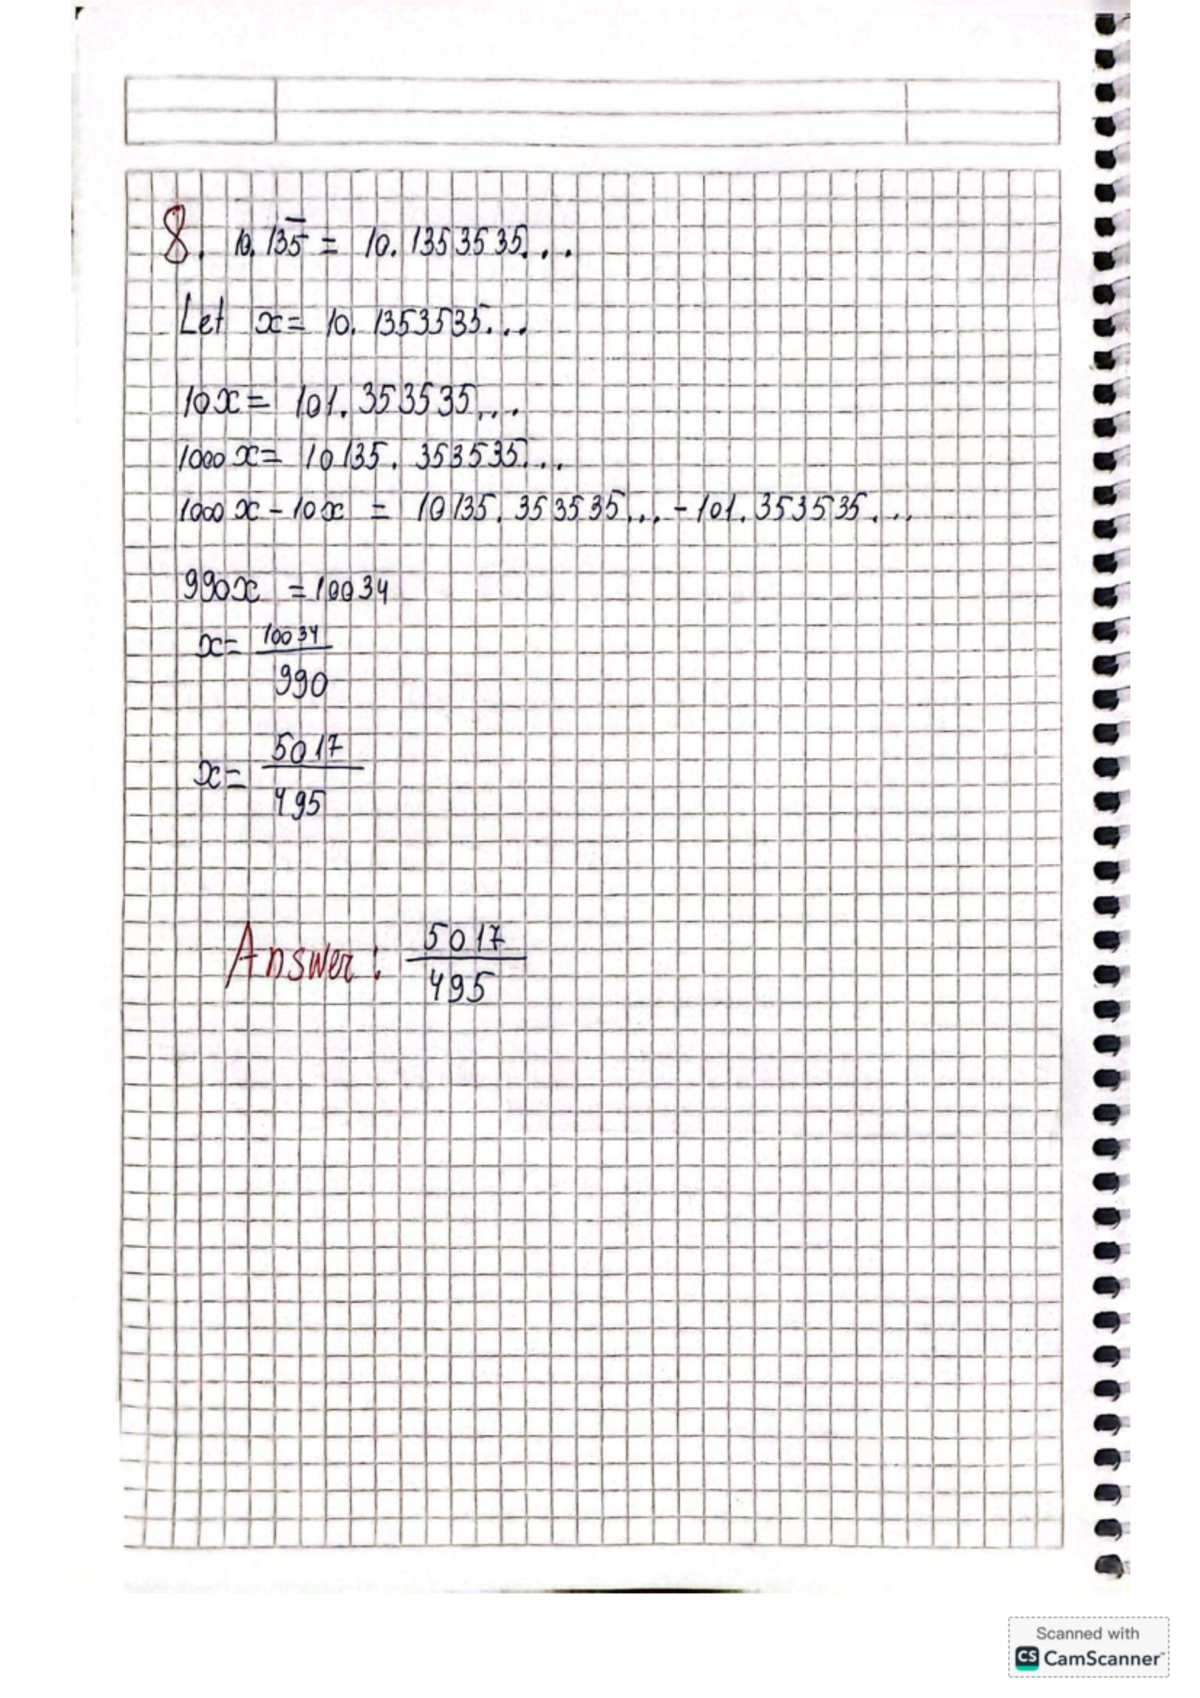 8. 10.13̅5̅ = 10.1353535...
Let x = 10.1353535...
10x = 101.353535...
1000x = 10135.353535...
1000x - 10x = 10135.353535... - 101.353535...
990x = 10034
x = 10034/990
x = 5017/495
Answer: 5017/495
Scanned with
CS CamScanner